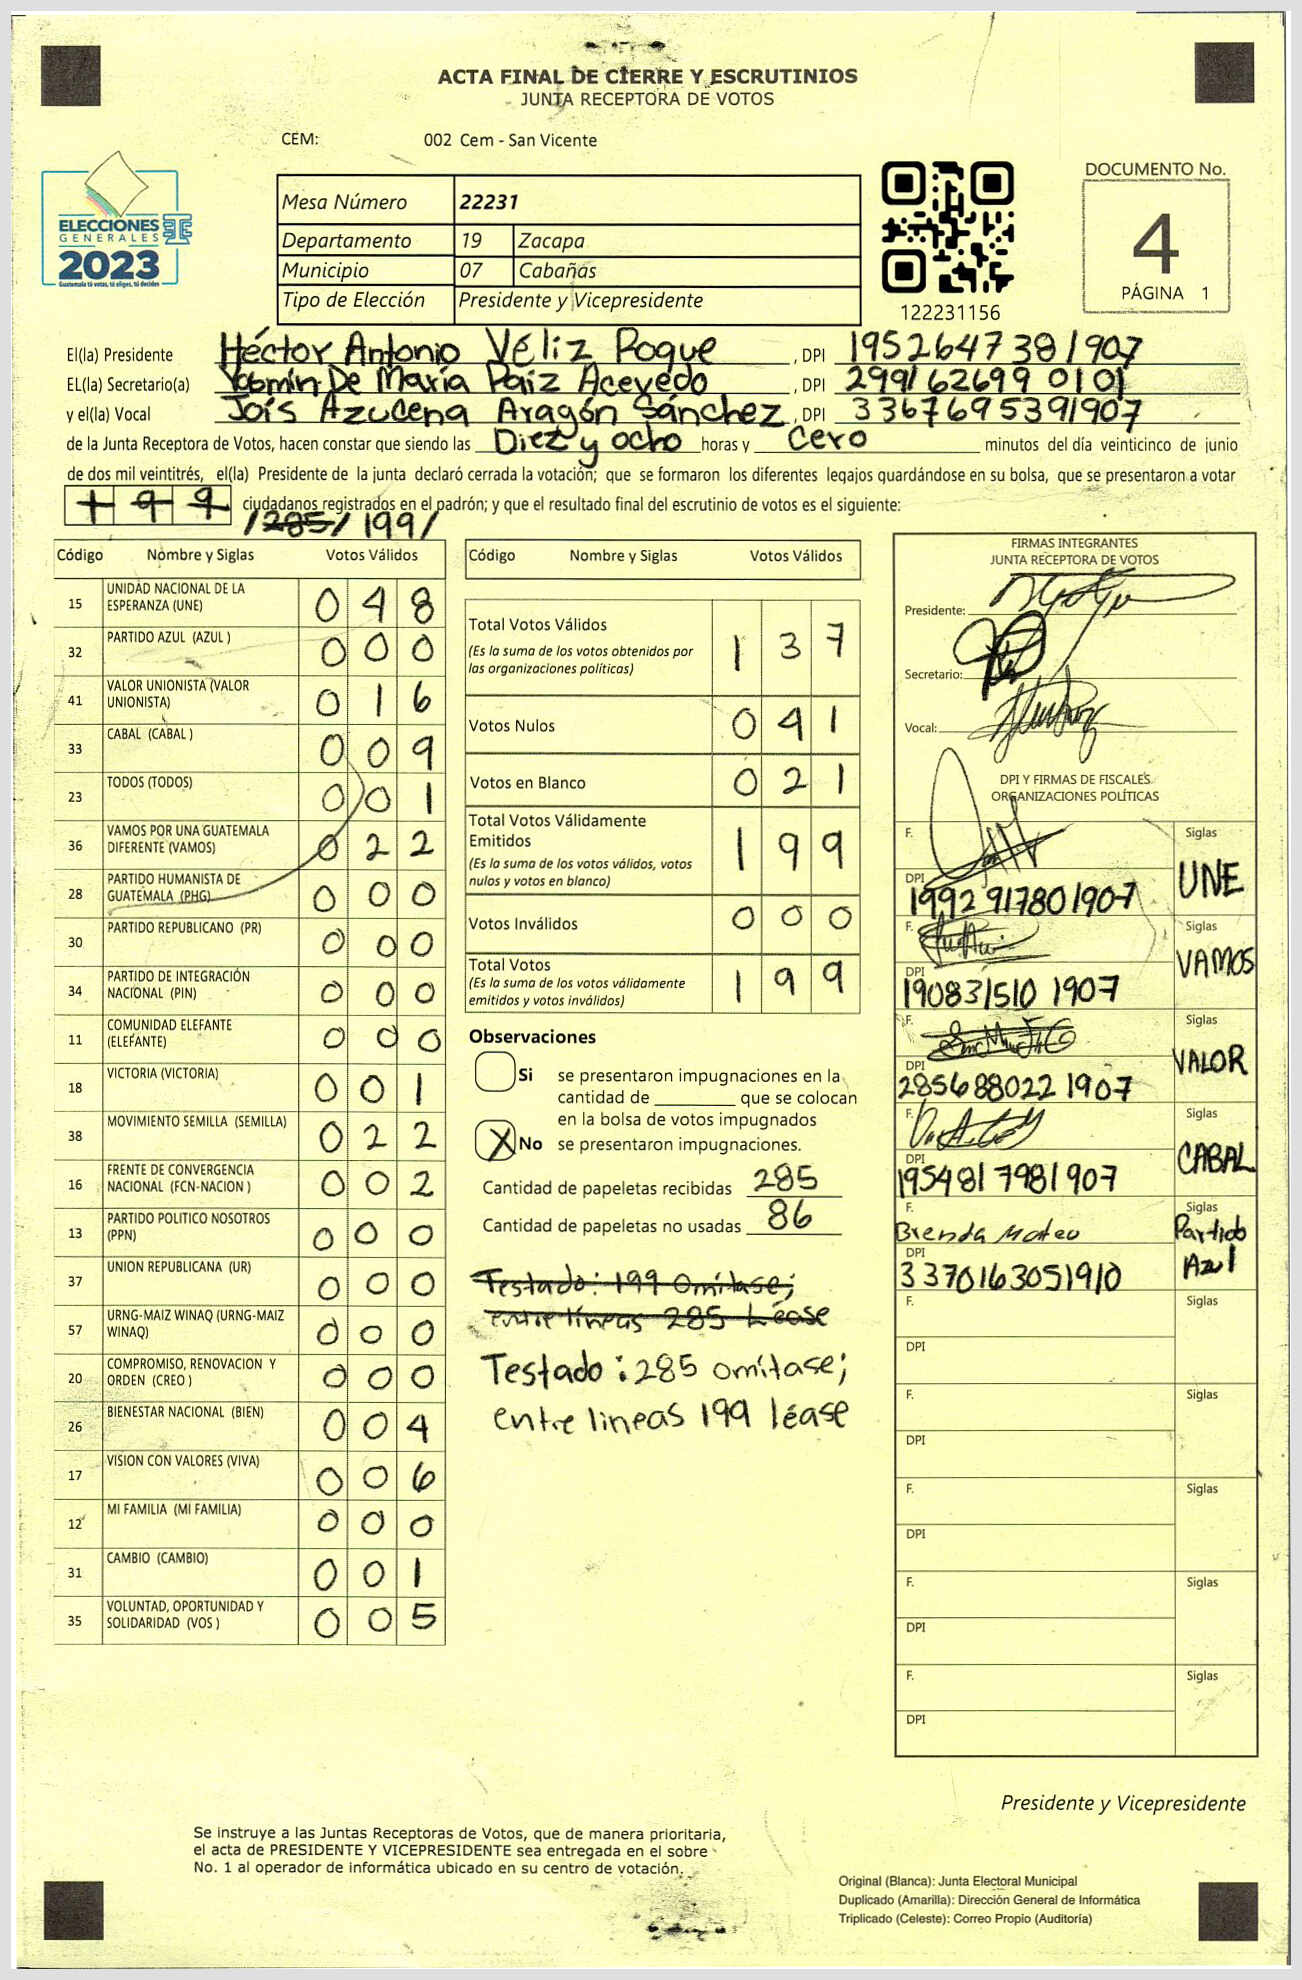 ACTA FINAL DE CIERRE Y ESCRUTINIOS
JUNTA RECEPTORA DE VOTOS
CEM: 002 Cem - San Vicente
ELECCIONES
GENERALES
2023
Guatemala tú votas, tú eliges, tú decides
Mesa Número 22231
Departamento 19 Zacapa
Municipio 07 Cabañas
Tipo de Elección Presidente y Vicepresidente
122231156
DOCUMENTO No.
4
PÁGINA 1
El(la) Presidente Héctor Antonio Véliz Roque , DPI 1952647381907
EL(la) Secretario(a) Yasmín De María Paiz Acevedo , DPI 2991626990101
y el(la) Vocal Joís Azucena Aragón Sánchez , DPI 3367695391907
de la Junta Receptora de Votos, hacen constar que siendo las Diez y ocho horas y cero minutos del día veinticinco de junio
de dos mil veintitrés, el(la) Presidente de la junta declaró cerrada la votación; que se formaron los diferentes legajos guardándose en su bolsa, que se presentaron a votar
199 ciudadanos registrados en el padrón; y que el resultado final del escrutinio de votos es el siguiente:
/285/ 199/
Código Nombre y Siglas Votos Válidos
15 UNIDAD NACIONAL DE LA ESPERANZA (UNE) 0 4 8
32 PARTIDO AZUL (AZUL ) 0 0 0
41 VALOR UNIONISTA (VALOR UNIONISTA) 0 1 6
33 CABAL (CABAL ) 0 0 9
23 TODOS (TODOS) 0 0 1
36 VAMOS POR UNA GUATEMALA DIFERENTE (VAMOS) 0 2 2
28 PARTIDO HUMANISTA DE GUATEMALA (PHG) 0 0 0
30 PARTIDO REPUBLICANO (PR) 0 0 0
34 PARTIDO DE INTEGRACIÓN NACIONAL (PIN) 0 0 0
11 COMUNIDAD ELEFANTE (ELEFANTE) 0 0 0
18 VICTORIA (VICTORIA) 0 0 1
38 MOVIMIENTO SEMILLA (SEMILLA) 0 2 2
16 FRENTE DE CONVERGENCIA NACIONAL (FCN-NACION ) 0 0 2
13 PARTIDO POLITICO NOSOTROS (PPN) 0 0 0
37 UNION REPUBLICANA (UR) 0 0 0
57 URNG-MAIZ WINAQ (URNG-MAIZ WINAQ) 0 0 0
20 COMPROMISO, RENOVACION Y ORDEN (CREO ) 0 0 0
26 BIENESTAR NACIONAL (BIEN) 0 0 4
17 VISION CON VALORES (VIVA) 0 0 6
12 MI FAMILIA (MI FAMILIA) 0 0 0
31 CAMBIO (CAMBIO) 0 0 1
35 VOLUNTAD, OPORTUNIDAD Y SOLIDARIDAD (VOS ) 0 0 5
Código Nombre y Siglas Votos Válidos
Total Votos Válidos 1 3 7
(Es la suma de los votos obtenidos por
las organizaciones políticas)
Votos Nulos 0 4 1
Votos en Blanco 0 2 1
Total Votos Válidamente
Emitidos 1 9 9
(Es la suma de los votos válidos, votos
nulos y votos en blanco)
Votos Inválidos 0 0 0
Total Votos 1 9 9
(Es la suma de los votos válidamente
emitidos y votos inválidos)
Observaciones
Si se presentaron impugnaciones en la
cantidad de ________ que se colocan
en la bolsa de votos impugnados
X No se presentaron impugnaciones.
Cantidad de papeletas recibidas 285
Cantidad de papeletas no usadas 86
Testado: 199 omítase;
entre líneas 285 Léase
Testado: 285 omítase;
entre lineas 199 léase
FIRMAS INTEGRANTES
JUNTA RECEPTORA DE VOTOS
Presidente:
Secretario:
Vocal:
DPI Y FIRMAS DE FISCALES
ORGANIZACIONES POLÍTICAS
F. Siglas
UNE
DPI
1992 91780 1907
F. Siglas
VAMOS
DPI
190831510 1907
F. Siglas
VALOR
DPI
285688022 1907
F. Siglas
CABAL
DPI
195481798 1907
F. Siglas
Brenda Mateo Partido Azul
DPI
3370163051910
F. Siglas
DPI
F. Siglas
DPI
F. Siglas
DPI
F. Siglas
DPI
F. Siglas
DPI
Presidente y Vicepresidente
Se instruye a las Juntas Receptoras de Votos, que de manera prioritaria,
el acta de PRESIDENTE Y VICEPRESIDENTE sea entregada en el sobre
No. 1 al operador de informática ubicado en su centro de votación.
Original (Blanca): Junta Electoral Municipal
Duplicado (Amarilla): Dirección General de Informática
Triplicado (Celeste): Correo Propio (Auditoría)